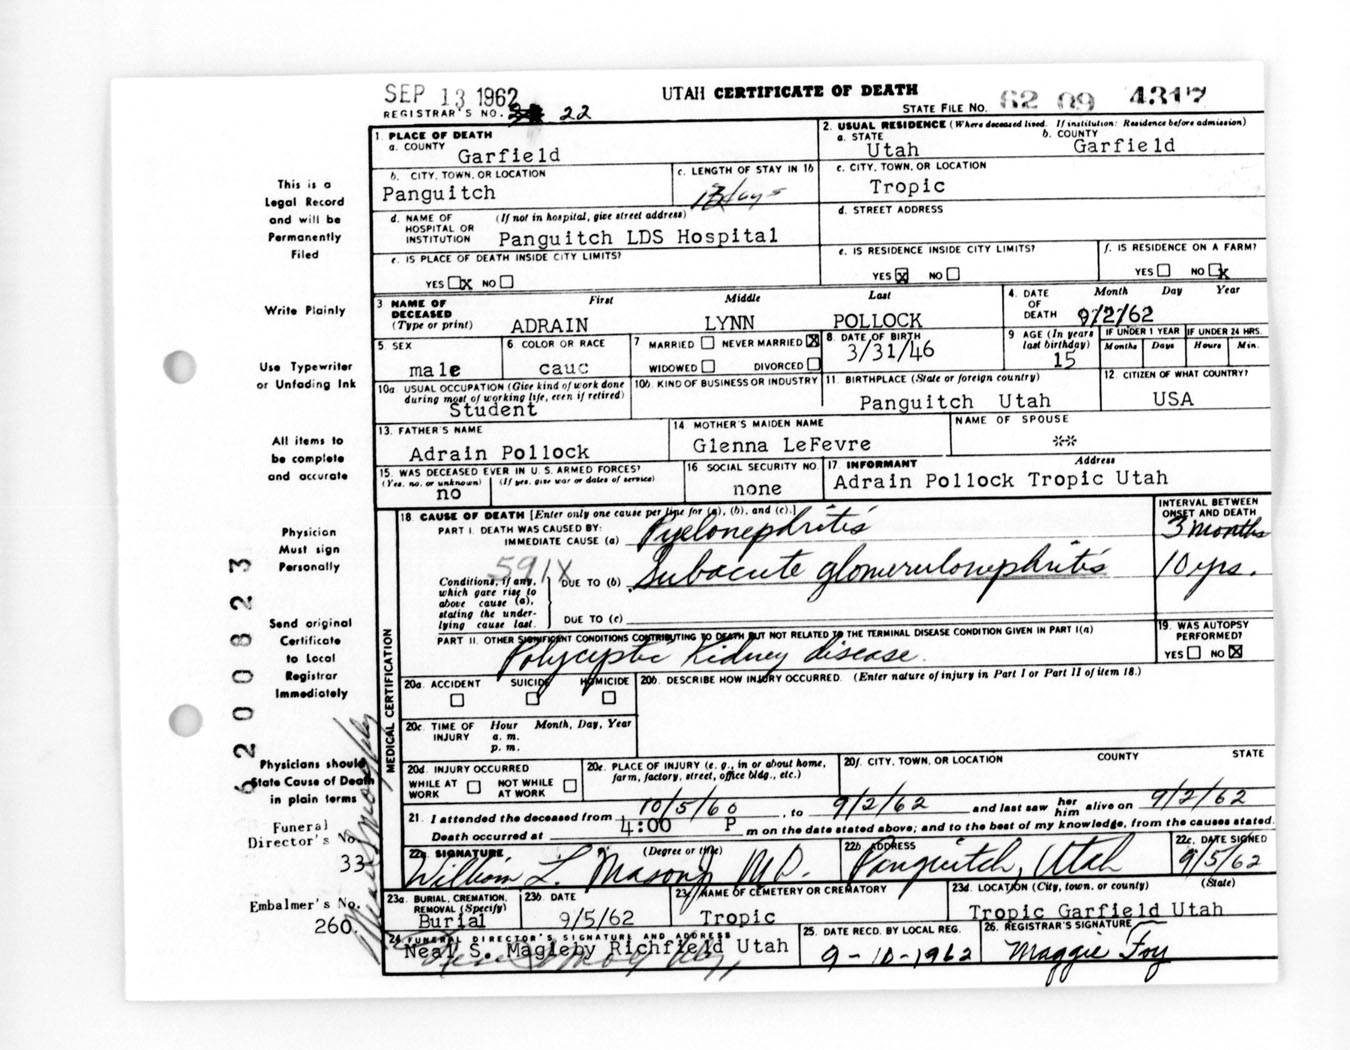 SEP 13 1962
UTAH CERTIFICATE OF DEATH
REGISTRAR'S NO. 22
STATE FILE NO. 62 09 4317
1. PLACE OF DEATH
a. COUNTY Garfield
2. USUAL RESIDENCE (Where deceased lived. If institution: Residence before admission)
a. STATE Utah
b. COUNTY Garfield
b. CITY, TOWN, OR LOCATION
Panguitch
c. LENGTH OF STAY IN 1b
days
c. CITY, TOWN, OR LOCATION
Tropic
d. NAME OF HOSPITAL OR INSTITUTION (If not in hospital, give street address)
Panguitch LDS Hospital
d. STREET ADDRESS
e. IS PLACE OF DEATH INSIDE CITY LIMITS?
YES X NO
e. IS RESIDENCE INSIDE CITY LIMITS?
YES X NO
f. IS RESIDENCE ON A FARM?
YES NO X
3 NAME OF DECEASED (Type or print)
First Middle Last
ADRAIN LYNN POLLOCK
4. DATE OF DEATH Month Day Year
9/2/62
5. SEX
male
6 COLOR OR RACE
cauc
7 MARRIED NEVER MARRIED X
WIDOWED DIVORCED
8. DATE OF BIRTH
3/31/46
9 AGE (In years last birthday)
15
IF UNDER 1 YEAR
Months Days
IF UNDER 24 HRS.
Hours Min.
10a USUAL OCCUPATION (Give kind of work done during most of working life, even if retired)
Student
10b. KIND OF BUSINESS OR INDUSTRY
11. BIRTHPLACE (State or foreign country)
Panguitch Utah
12. CITIZEN OF WHAT COUNTRY?
USA
13. FATHER'S NAME
Adrain Pollock
14 MOTHER'S MAIDEN NAME
Glenna LeFevre
NAME OF SPOUSE
**
15. WAS DECEASED EVER IN U. S. ARMED FORCES?
(Yes, no, or unknown) (If yes, give war or dates of service)
no
16. SOCIAL SECURITY NO.
none
17. INFORMANT Address
Adrain Pollock Tropic Utah
18. CAUSE OF DEATH [Enter only one cause per line for (a), (b), and (c).]
INTERVAL BETWEEN ONSET AND DEATH
PART I. DEATH WAS CAUSED BY:
IMMEDIATE CAUSE (a) Pyelonephritis 3 months
591X
Conditions, if any, which gave rise to above cause (a), stating the underlying cause last.
DUE TO (b) Subacute glomerulonephritis 10 yrs.
DUE TO (c)
PART II. OTHER SIGNIFICANT CONDITIONS CONTRIBUTING TO DEATH BUT NOT RELATED TO THE TERMINAL DISEASE CONDITION GIVEN IN PART I(a)
Polycystic Kidney disease.
19. WAS AUTOPSY PERFORMED?
YES NO X
MEDICAL CERTIFICATION
20a. ACCIDENT SUICIDE HOMICIDE
20b. DESCRIBE HOW INJURY OCCURRED. (Enter nature of injury in Part I or Part II of item 18.)
20c. TIME OF INJURY Hour Month, Day, Year
a. m.
p. m.
20d. INJURY OCCURRED
WHILE AT WORK NOT WHILE AT WORK
20e. PLACE OF INJURY (e. g., in or about home, farm, factory, street, office bldg., etc.)
20f. CITY, TOWN, OR LOCATION COUNTY STATE
21. I attended the deceased from 10/5/60, to 9/2/62 and last saw her him alive on 9/2/62
Death occurred at 4:00 P m on the date stated above; and to the best of my knowledge, from the causes stated.
22a. SIGNATURE (Degree or title)
William L. Mason M.D.
22b ADDRESS
Panguitch, Utah
22c. DATE SIGNED
9/5/62
23a. BURIAL, CREMATION, REMOVAL (Specify)
Burial
23b. DATE
9/5/62
23c NAME OF CEMETERY OR CREMATORY
Tropic
23d. LOCATION (City, town, or county) (State)
Tropic Garfield Utah
24 FUNERAL DIRECTOR'S SIGNATURE AND ADDRESS
Neal S. Magleby Richfield Utah
25. DATE RECD. BY LOCAL REG.
9-10-1962
26. REGISTRAR'S SIGNATURE
Maggie Foy
This is a
Legal Record
and will be
Permanently
Filed
Write Plainly
Use Typewriter
or Unfading Ink
All items to
be complete
and accurate
Physician
Must sign
Personally
Send original
Certificate
to Local
Registrar
Immediately
Physicians should
State Cause of Death
in plain terms
Funeral
Director's No.
33
Embalmer's No.
260.
6200823